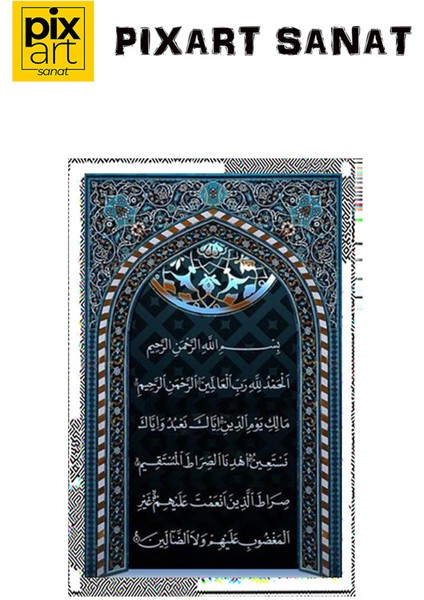 pix
art
sanat
PIXART SANAT
بِسْمِ اللهِ الرَّحْمٰنِ الرَّحِيمِ
اَلْحَمْدُ لِلّٰهِ رَبِّ الْعَالَمِينَ الرَّحْمٰنِ الرَّحِيمِ
مَالِكِ يَوْمِ الدِّينِ اِيَّاكَ نَعْبُدُ وَاِيَّاكَ
نَسْتَعِينُ اِهْدِنَا الصِّرَاطَ الْمُسْتَقِيمَ
صِرَاطَ الَّذِينَ اَنْعَمْتَ عَلَيْهِمْ غَيْرِ
الْمَغْضُوبِ عَلَيْهِمْ وَلَا الضَّالِّينَ